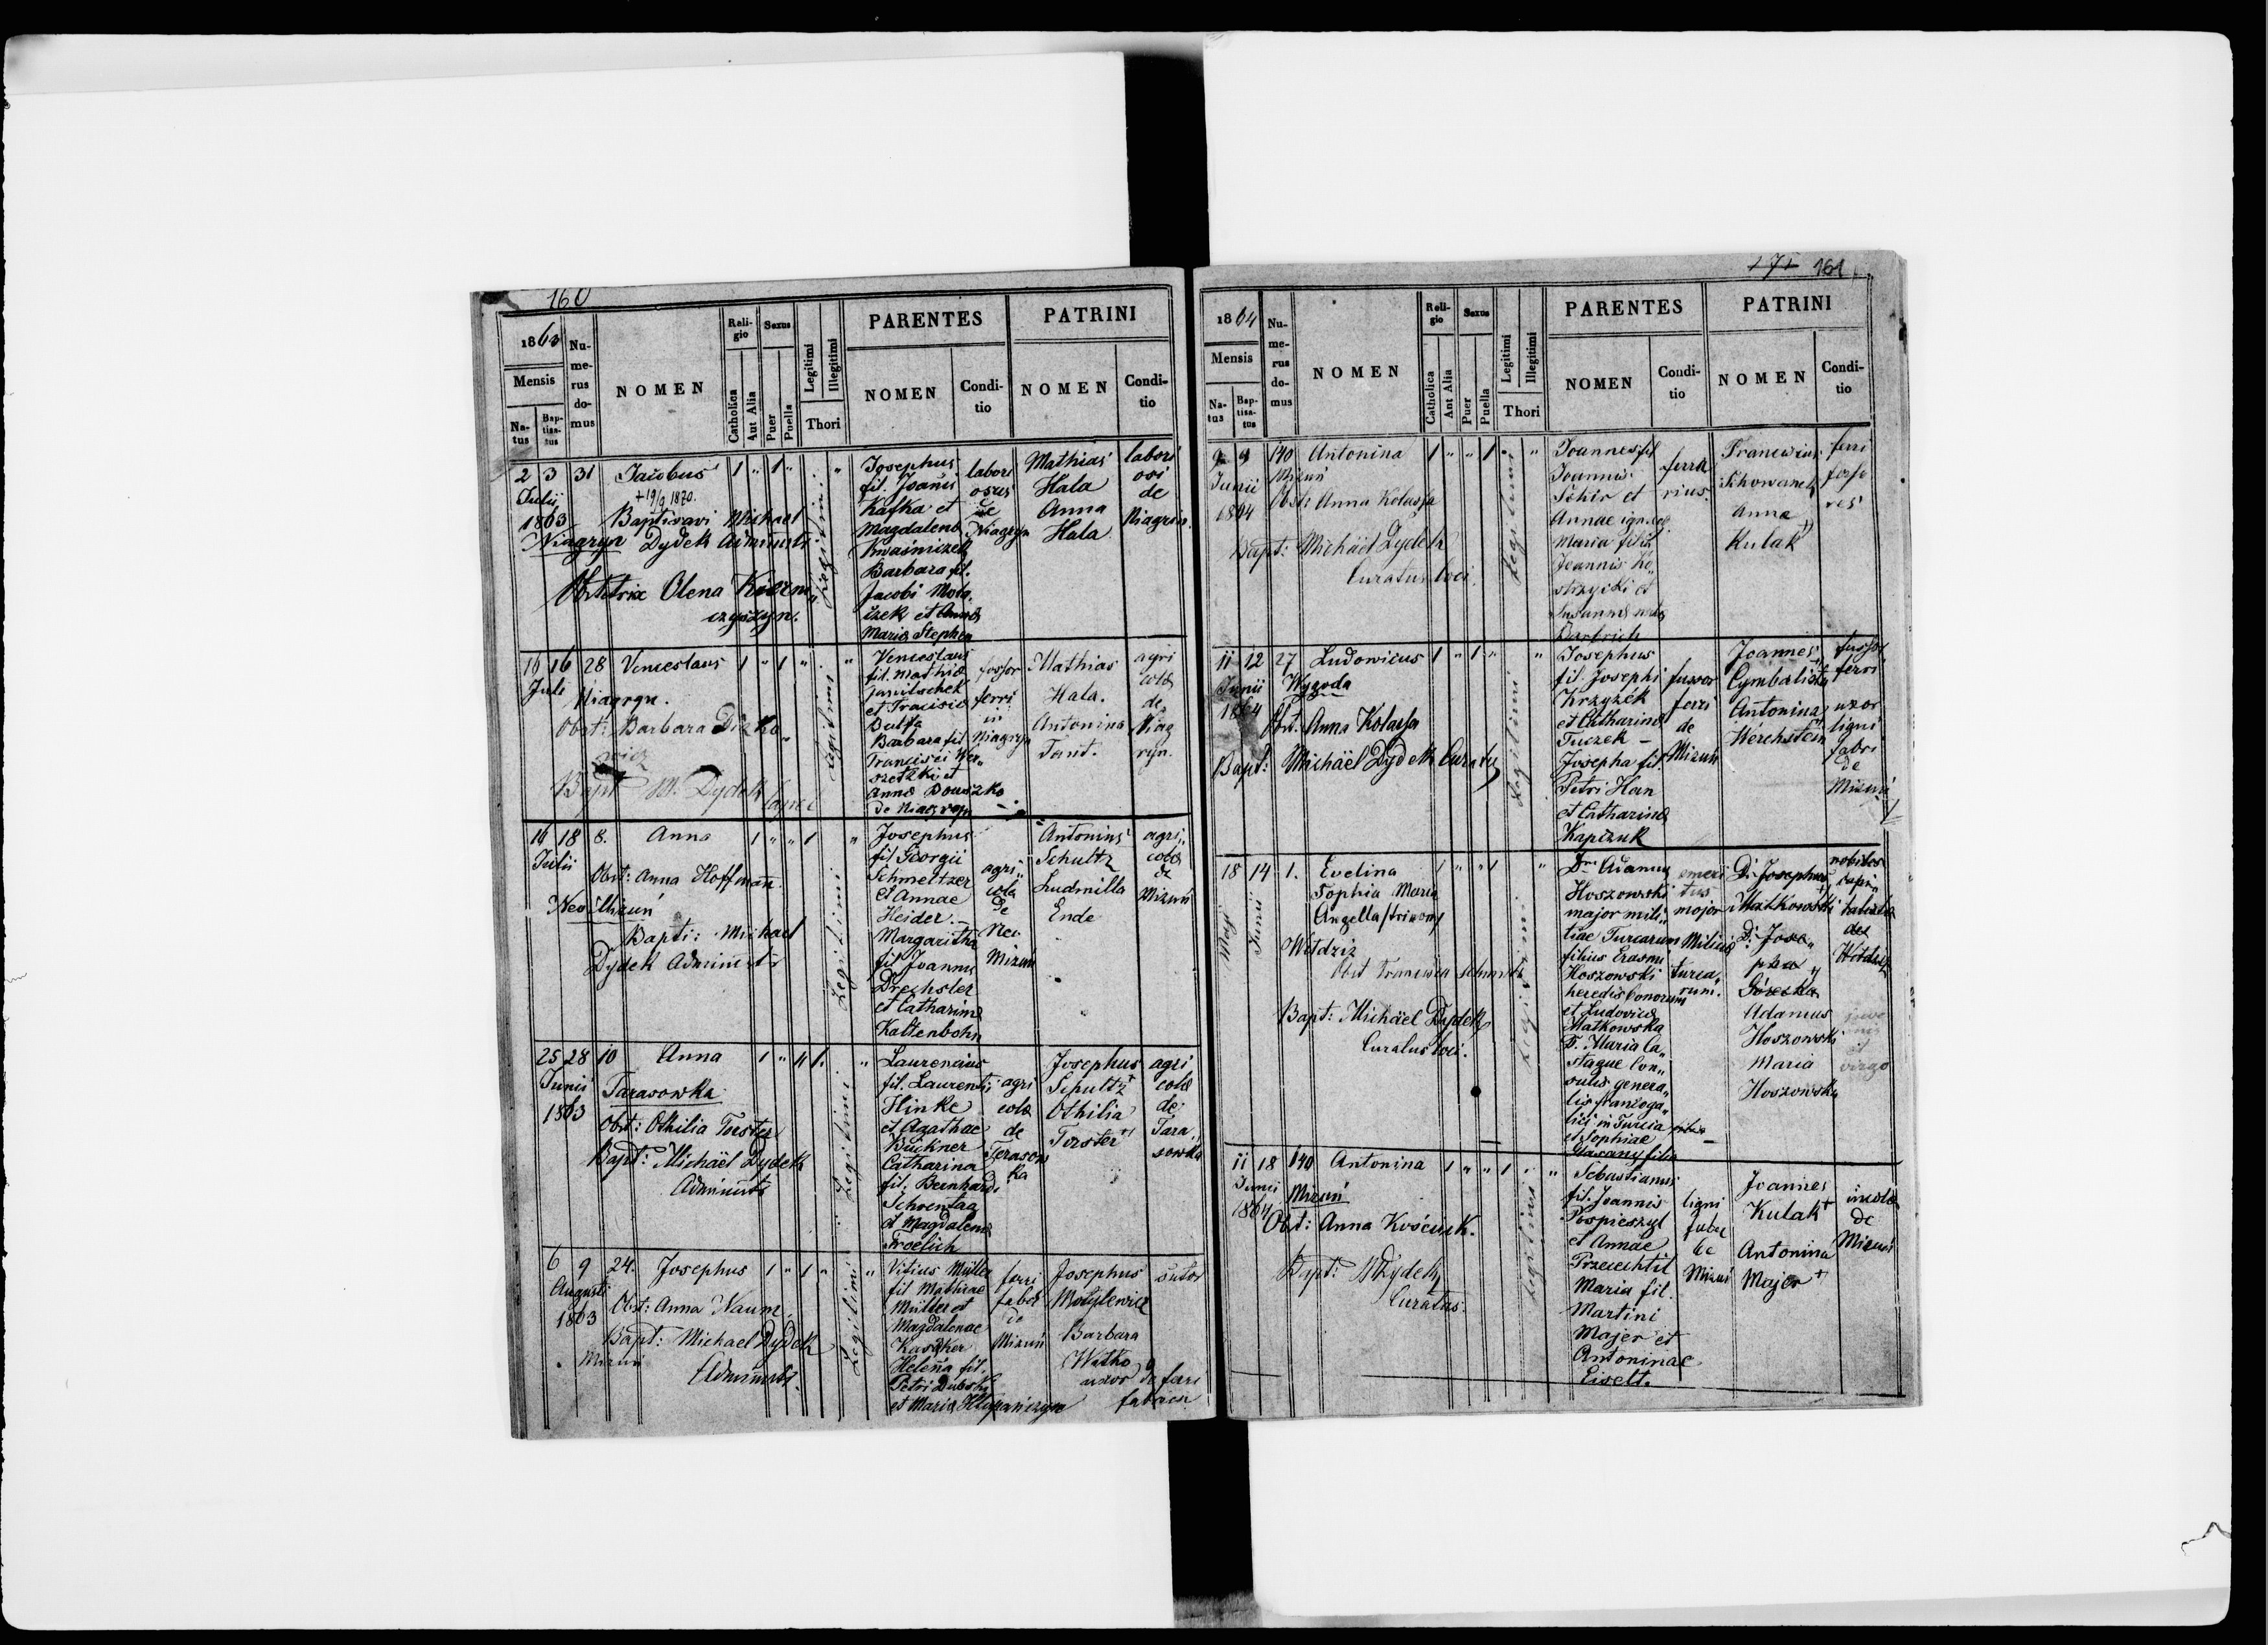 160
1863
Mensis
Na-
tus
Bap-
tisa-
tus
Nu-
me-
rus
do-
mus
NOMEN
Reli-
gio
Catholica
Aut Alia
Sexus
Puer
Puella
Legitimi
Illegitimi
Thori
PARENTES
NOMEN
Condi-
tio
PATRINI
NOMEN
Condi-
tio
2 3 31 Jacobus 1 " 1 "
Julii
1863
Niagryn
+19/9 1870.
Baptisavi Michael
Dydek Administr
Obstetrix Olena
czyszyn.
Legitimi
Josephus
fil. Joanis
Kafka et
Magdalena
Kwaśniczek
Barbara fil.
Jacobi Mota
czek et Anna
Maria Stephan
labori
osus
de
Niagryn
Mathias
Hala
Anna
Hala
labori
osi
de
Niagrin
16 16 28 Venceslaus 1 " 1 "
Juli
Niagryn.
Obst: Barbara
Bapt M. Dydek
Legitimi
Venceslaus
fil. Mathiae
et
Barbara fil
Francisci
szetzki et
Anna
de Niagryn
fossor
ferri
in
Niagryn
Mathias
Hala.
Antonina
agri
colae
de
Niag
ryn.
16 18 8. Anna 1 " " 1 "
Julii
Obst: Anna Hoffmann
Neo Mizuń
Bapti: Michael
Dydek Administr
Legitimi
Josephus
fil Georgii
Schmeltzer
et Annae
Heider.-
Margaritha
fil Joannis
Drechsler
et Catharina
Kaltenbohn
agri"
cola
de
Neo
Mizuń
Antonius
Schultz
Ludmilla
Ende
agri"
colae
de
Mizuń
25 28 10 Anna 1 " " 1. "
Junii
1863
Tarasowka
Obst: Othilia Forster
Bapt: Michäel Dydek
Administr
Legitimi
Laurencius
fil. Laurenti
Hinke
et Agathae
Bückner
Catharina
fil. Bernhardi
Schoentag
et Magdalena
Froelich
agri
cola
de
Terasow
ka
Josephus
Schultz
Othilia
Forster
agri
colae
de
Tara
sowka
6 9 24. Josephus 1 " 1 " "
Augusti
1863
Obst: Anna Naum.
Bapt: Michael Dydek
Mizuń
Administr.
Legitimi
Vitius Müller
fil Mathiae
Müller et
Magdalenae
Helena fil.
Petri
et Maria
ferri
faber
de
Mizuń
Josephus
Motylewicz
Barbara
Witko
uxor
sutor
161
1864
Mensis
Na-
tus
Bap-
tisa-
tus
Nu-
me-
rus
do-
mus
NOMEN
Reli-
gio
Catholica
Aut Alia
Sexus
Puer
Puella
Legitimi
Illegitimi
Thori
PARENTES
NOMEN
Condi-
tio
PATRINI
NOMEN
Condi-
tio
9 9 140 Antonina 1 " " 1 "
Junii
1864
Mizuń
Obst: Anna Kolassa
Bapt: Michäel Dydek
Curatus loci.
Legitimi
Joannes fil
Joannis
Schir et
Annae
Maria filia
Joannis Ko"
strzycki et
Susanna nata
ferra
rius.
Schowanek
Anna
Kulak
ferri
11 12 27 Ludovicus 1 " 1 " "
Junii
1864
Wygoda
Obst. Anna Kolassa
Bapt: Michäel Dydek Curatus
Legitimi
Josephus
fil. Josephi
Krzyżek
et Catharina
Tuczek -
Josepha fil.
Petri Han
et Catharina
Kapczuk
fussor
ferri
de
Mizuń
Joannes
Cymbalista
Antonina
Herchstein
fussor
ferri
uxor
ligni
fabri
de
Mizuń
18 14 1. Evelina 1 " " 1 "
Maji
Junii
Sophia Maria
Angella
Weldziz
Obst Francisca Schmidt
Bapt: Michäel Dydek
Curatus loci.
Legitimi
Adamus
Hoszowski
major mili"
tiae Turcarum
filius Erasmi
Hoszowski
heredis bonorum
et Ludovica
Matkowska
D. Maria Ca"
stague Con"
sulis genera"
lis francoga"
lici in Turcia
et Sophiae
filia
emeri
tus
major
Militiae
turca"
rum.
D. Josephus
Matkowski
D. Jose"
pha
Górecka
Adamus
Hoszowski
Maria
Hoszowska
nobiles
de
Weldziz
juve
nis
et
virgo
11 18 140 Antonina 1 " " 1 "
Junii
1864
Mizuń
Obst: Anna Kościuk.
Bapt: MDydek
Curatus.
Legitimi
Sebastianus
fil. Joannis
Pospieszyl
et Annae
Przecechtil
Maria fil.
Martini
Majer et
Antoninae
Eiselt.
ligni
faber
de
Mizuń
Joannes
Kulak +
Antonina
Majer +
incolae
de
Mizuń